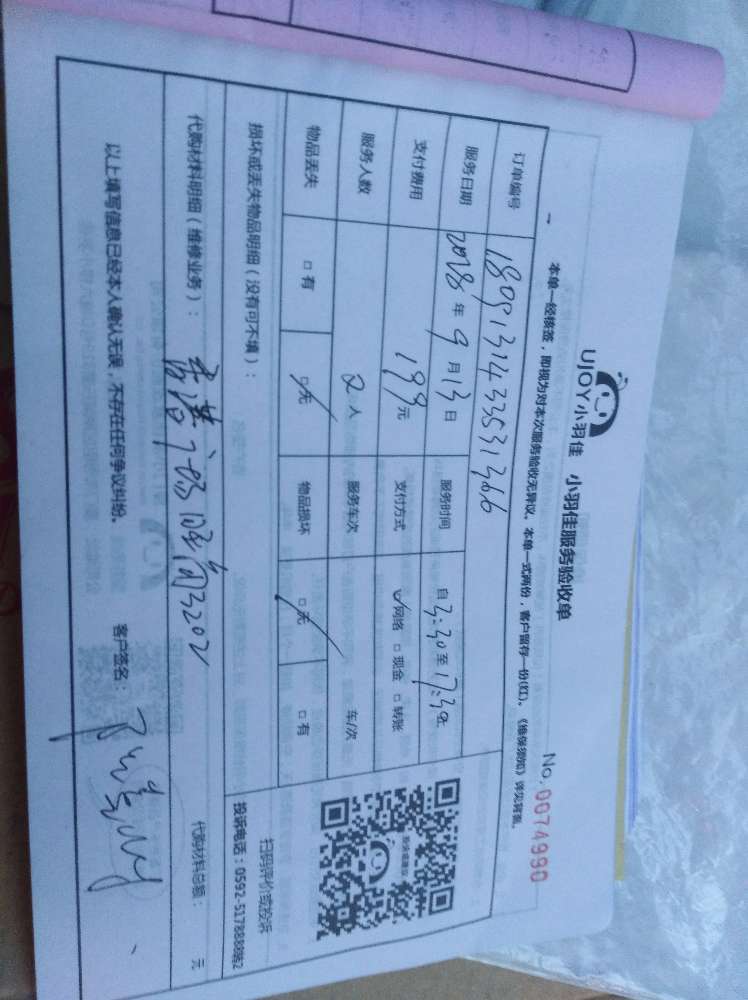 UJOY小羽佳 小羽佳服务验收单
No.0074990
本单一经核签，即视为对本次服务验收无异议。本单一式两份，客户留存一份(红)。《维保须知》详见背面。
订单编号 1809131433531366
服务日期 2018年9月13日 服务时间 自3:30至17:30止
支付费用 199元 支付方式 网络 现金 转账
服务人数 2人 服务车次 车/次
物品丢失 有 无 物品损坏 无 有
扫码评价或投诉
投诉电话：0592-5178888转2
损坏或丢失物品明细（没有可不填）：
代购材料明细（维修业务）： 代购材料总额： 元
3202
以上填写信息已经本人确认无误，不存在任何争议纠纷。 客户签名：